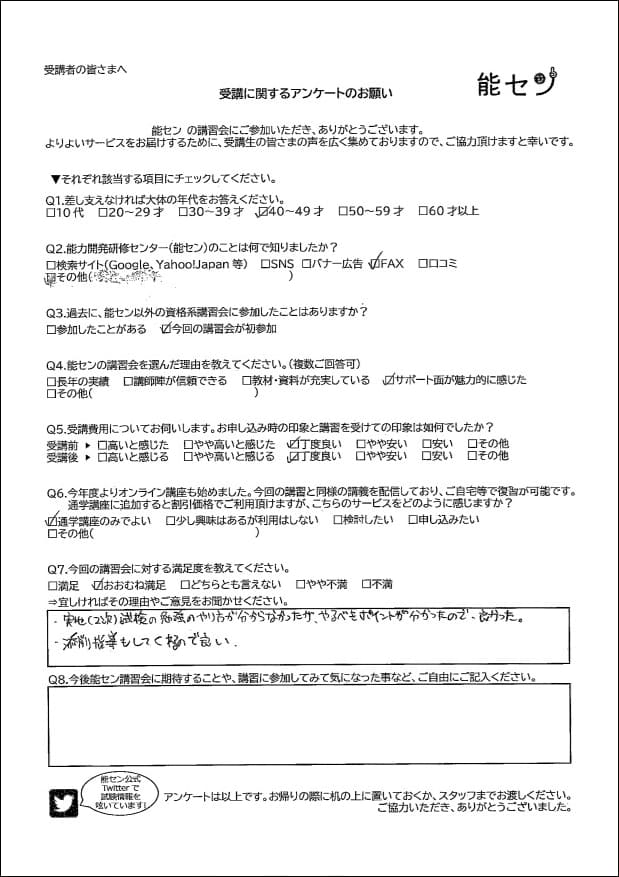 受講者の皆さまへ
能セン
受講に関するアンケートのお願い
能セン の講習会にご参加いただき、ありがとうございます。
よりよいサービスをお届けするために、受講生の皆さまの声を広く集めておりますので、ご協力頂けますと幸いです。
▼それぞれ該当する項目にチェックしてください。
Q1.差し支えなければ大体の年代をお答えください。
□10代 □20~29才 □30~39才 ☑40~49才 □50~59才 □60才以上
Q2.能力開発研修センター(能セン)のことは何で知りましたか?
□検索サイト(Google、Yahoo!Japan等) □SNS □バナー広告 ☑FAX □口コミ
☑その他( )
Q3.過去に、能セン以外の資格系講習会に参加したことはありますか?
□参加したことがある ☑今回の講習会が初参加
Q4.能センの講習会を選んだ理由を教えてください。(複数ご回答可)
□長年の実績 □講師陣が信頼できる □教材・資料が充実している ☑サポート面が魅力的に感じた
□その他( )
Q5.受講費用についてお伺いします。お申し込み時の印象と講習を受けての印象は如何でしたか?
受講前 ▶ □高いと感じた □やや高いと感じた ☑丁度良い □やや安い □安い □その他
受講後 ▶ □高いと感じる □やや高いと感じる ☑丁度良い □やや安い □安い □その他
Q6.今年度よりオンライン講座も始めました。今回の講習と同様の講義を配信しており、ご自宅等で復習が可能です。
通学講座に追加すると割引価格でご利用頂けますが、こちらのサービスをどのように感じますか?
☑通学講座のみでよい □少し興味はあるが利用はしない □検討したい □申し込みたい
□その他( )
Q7.今回の講習会に対する満足度を教えてください。
□満足 ☑おおむね満足 □どちらとも言えない □やや不満 □不満
⇒宜しければその理由やご意見をお聞かせください。
・実地(2次)試検の勉強のやり方が分からなかったが、やるべきポイントが分かったので、良かった。
・添削指導もしてくれるので良い.
Q8.今後能セン講習会に期待することや、講習に参加してみて気になった事など、ご自由にご記入ください。
能セン公式
Twitterで
試験情報を
呟いています!
アンケートは以上です。お帰りの際に机の上に置いておくか、スタッフまでお渡しください。
ご協力いただき、ありがとうございました。